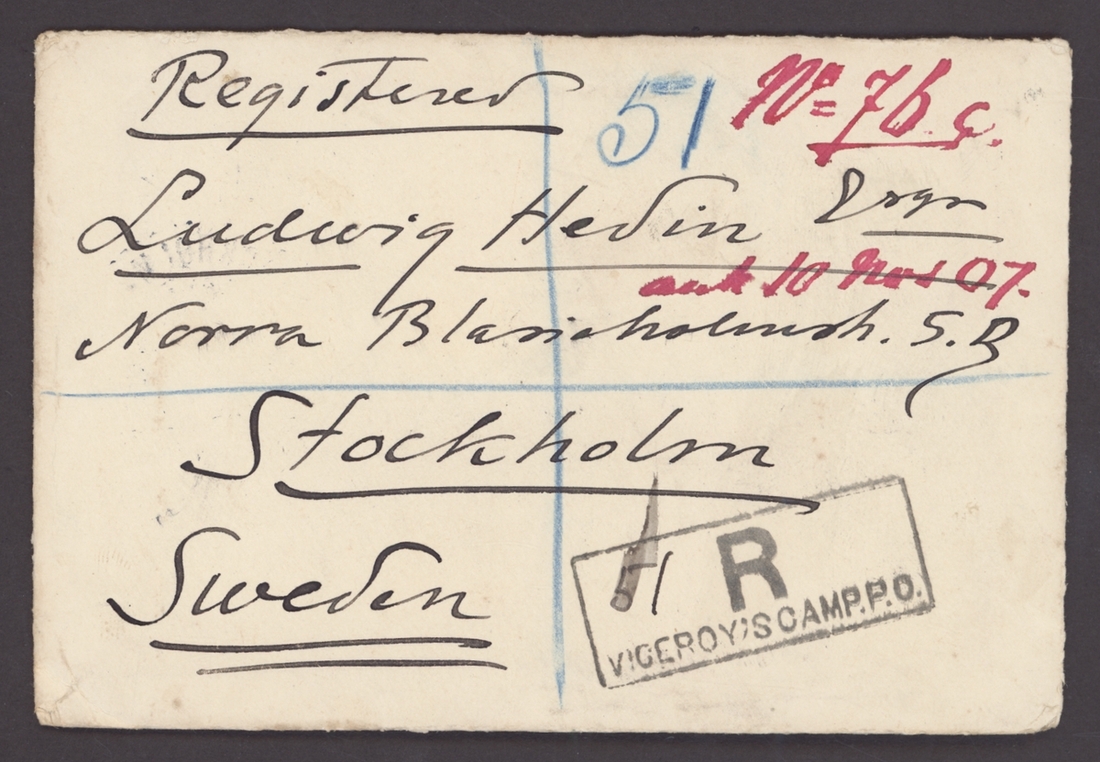 Registered
51
No = 76 c.
Ludwig Hedin Esqr
10 Nov 07.
Norra Blasieholmsh. 5.B
Stockholm
Sweden
R
VICEROY'S CAMP.P.O.